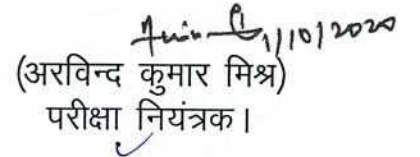 1/10/2020
(अरविन्द कुमार मिश्र)
परीक्षा नियंत्रक।